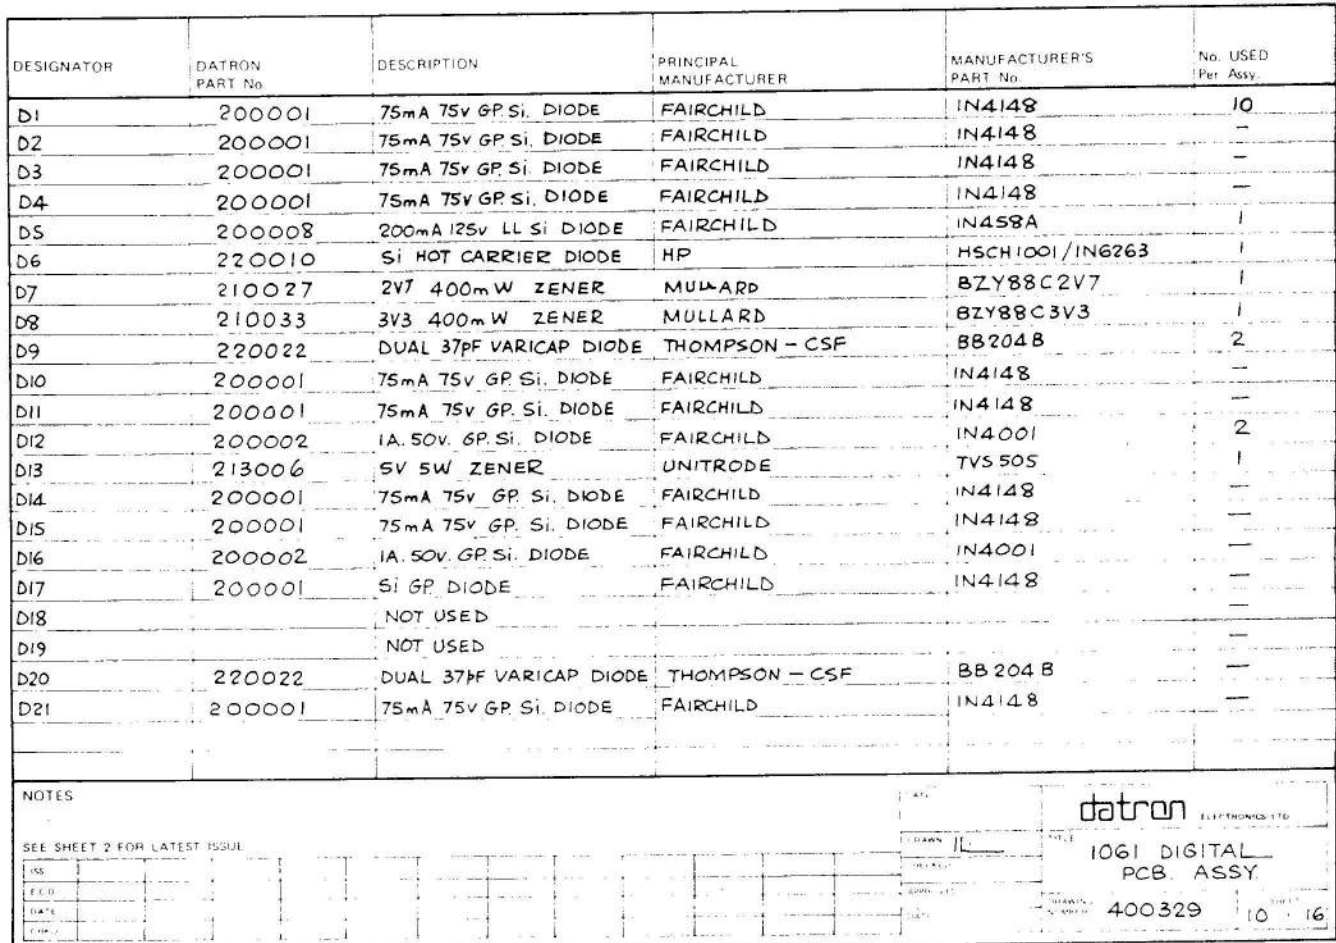 DESIGNATOR DATRON PART No. DESCRIPTION PRINCIPAL MANUFACTURER MANUFACTURER'S PART No. No. USED Per Assy.
D1 200001 75mA 75v GP. Si. DIODE FAIRCHILD IN4148 10
D2 200001 75mA 75v GP. Si. DIODE FAIRCHILD IN4148 —
D3 200001 75mA 75v GP. Si. DIODE FAIRCHILD IN4148 —
D4 200001 75mA 75v GP. Si. DIODE FAIRCHILD IN4148 —
D5 200008 200mA 125v LL Si DIODE FAIRCHILD IN458A 1
D6 220010 Si HOT CARRIER DIODE HP HSCH1001/IN6263 1
D7 210027 2V7 400mW ZENER MULLARD BZY88C2V7 1
D8 210033 3V3 400mW ZENER MULLARD BZY88C3V3 1
D9 220022 DUAL 37pF VARICAP DIODE THOMPSON – CSF BB204B 2
D10 200001 75mA 75v GP. Si. DIODE FAIRCHILD IN4148 —
D11 200001 75mA 75v GP. Si. DIODE FAIRCHILD IN4148 —
D12 200002 1A. 50v. GP. Si. DIODE FAIRCHILD IN4001 2
D13 213006 5V 5W ZENER UNITRODE TVS 505 1
D14 200001 75mA 75v GP. Si. DIODE FAIRCHILD IN4148 —
D15 200001 75mA 75v GP. Si. DIODE FAIRCHILD IN4148 —
D16 200002 1A. 50v. GP. Si. DIODE FAIRCHILD IN4001 —
D17 200001 Si GP. DIODE FAIRCHILD IN4148 —
D18 NOT USED —
D19 NOT USED —
D20 220022 DUAL 37pF VARICAP DIODE THOMPSON – CSF BB204B —
D21 200001 75mA 75v GP. Si. DIODE FAIRCHILD IN4148 —
NOTES
SEE SHEET 2 FOR LATEST ISSUE
ISS
E.C.O
DATE
CHKD
DATE
DRAWN
CHECKED
DATE
datron ELECTRONICS LTD
TITLE
1061 DIGITAL
PCB. ASSY.
DRAWING NUMBER 400329 SHEET 10 16